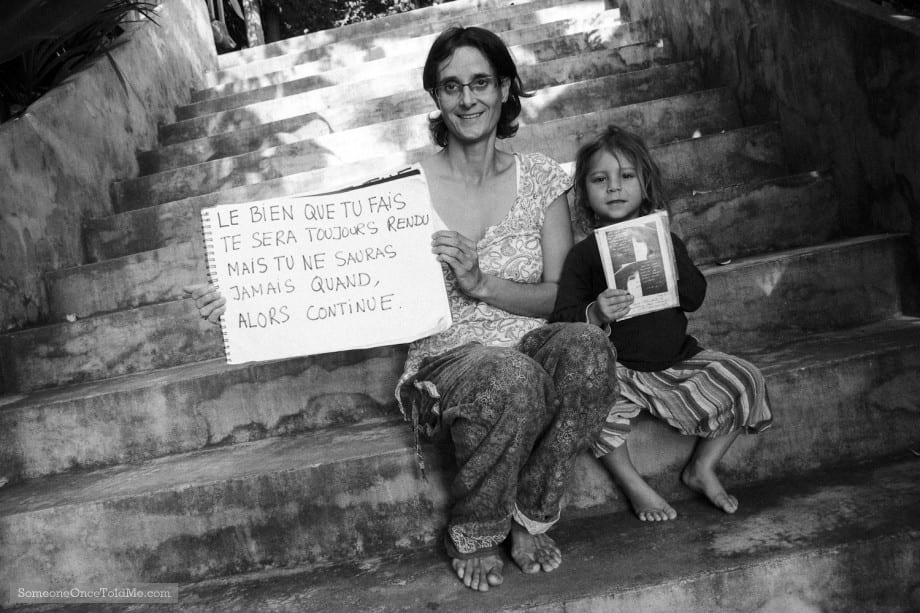 LE BIEN QUE TU FAIS
TE SERA TOUJOURS RENDU
MAIS TU NE SAURAS
JAMAIS QUAND,
ALORS CONTINUE.
SomeoneOnceToldMe.com